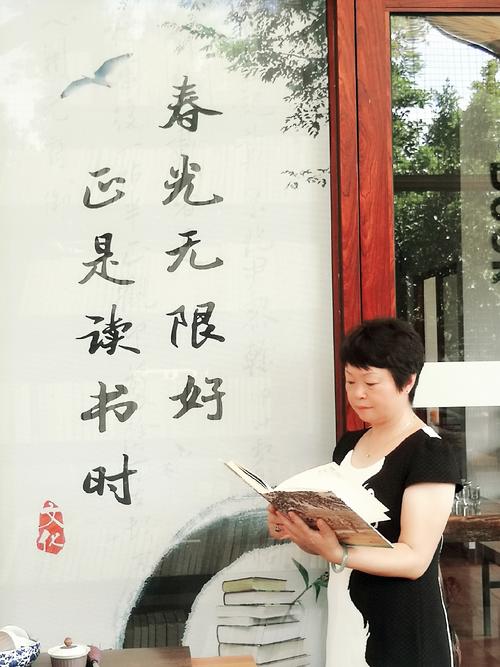 春光无限好
正是读书时
文化